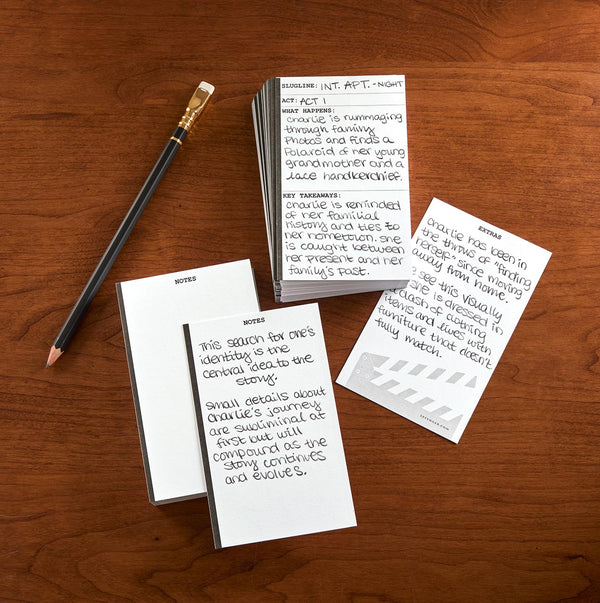 SLUGLINE: INT. APT. - NIGHT
ACT: ACT 1
WHAT HAPPENS:
Charlie is rummaging
through family
Photos and finds a
Polaroid of her young
grandmother and a
lace handkerchief.
KEY TAKEAWAYS:
Charlie is reminded
of her familial
history and ties to
her hometown. She
is caught between
her present and her
family's past.
EXTRAS
Charlie has been in
the throws of "finding
herself" since moving
away from home.
see this visually
she is dressed in
clash of clothing
items and lives with
furniture that doesn't
fully match.
NOTES
NOTES
This search for one's
identity is the
central idea to the
story.
Small details about
Charlie's journey
are subliminal at
first but will
compound as the
story continues
and evolves.